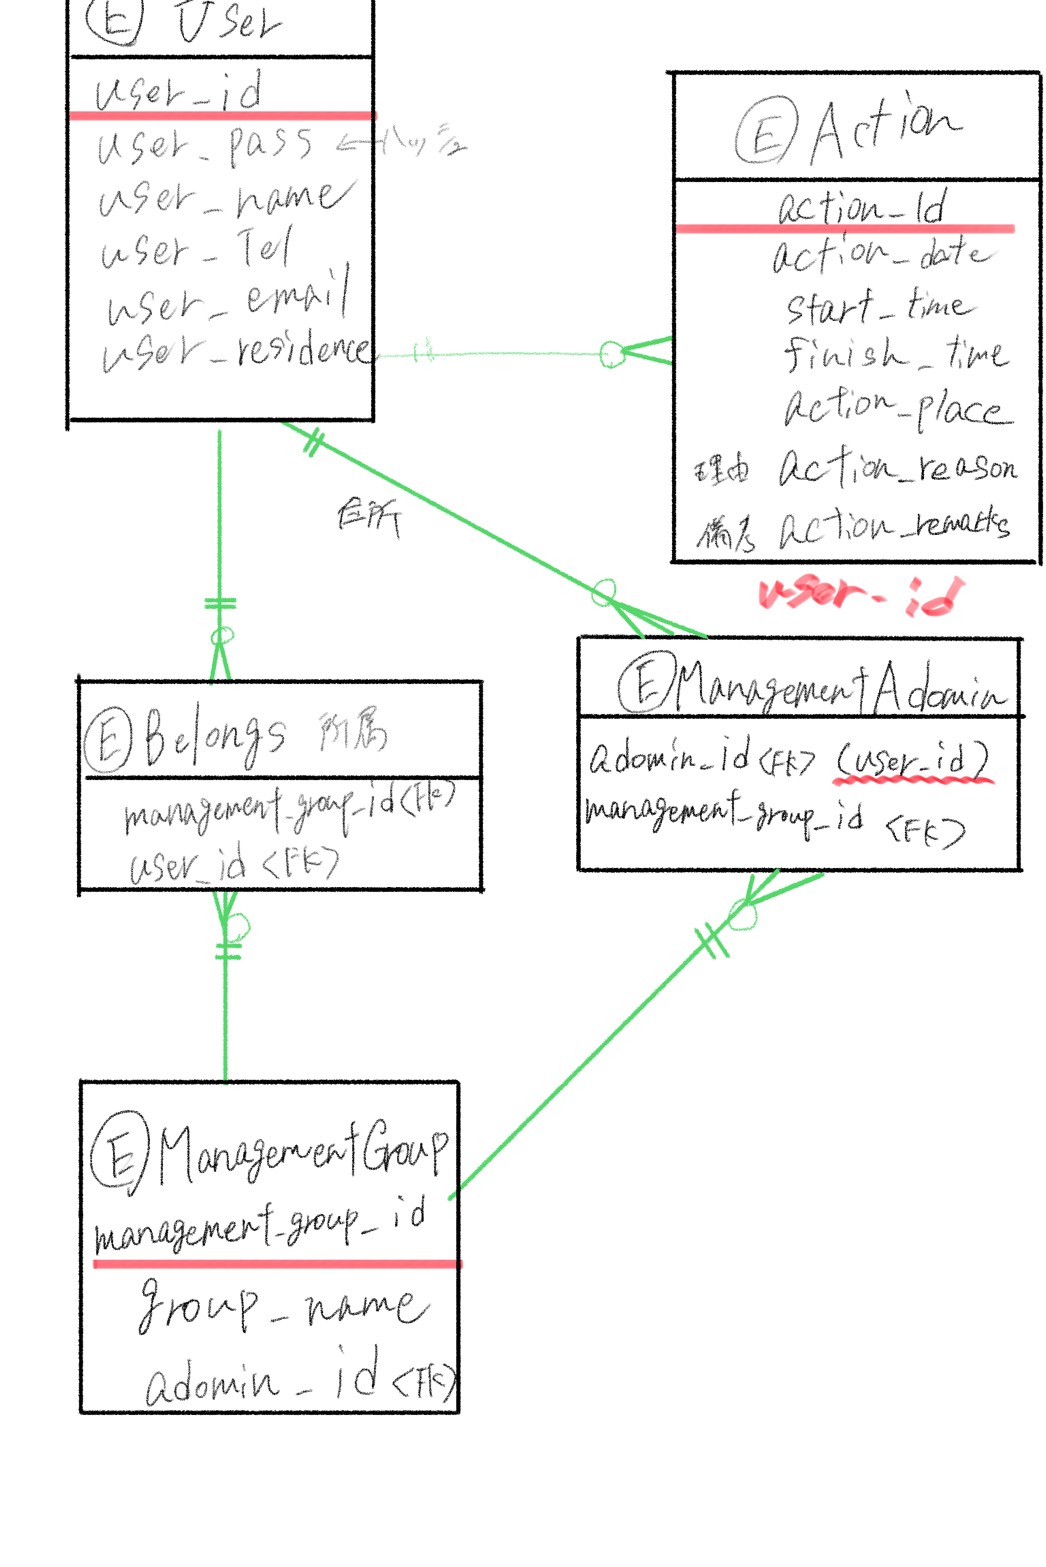 E User
user_id
user_pass ←ハッシュ
user_name
user_Tel
user_email
user_residence
E Action
action_Id
action_date
start_time
finish_time
action_place
理由 action_reason
備考 action_remarks
user-id
住所
E ManagementAdomin
adomin_id <FK> (user_id)
management_group_id <FK>
E Belongs 所属
management_group_id <FK>
user_id <FK>
E ManagementGroup
management_group_id
group_name
adomin_id <FK>